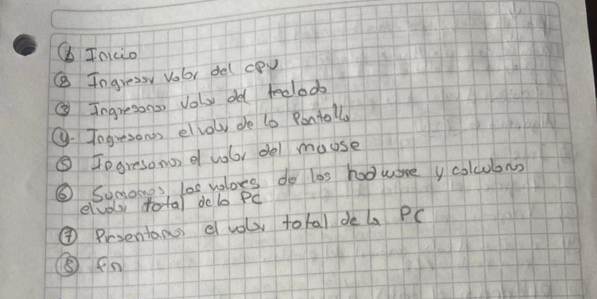 ① Inicio
② Ingresar valor del CPU
③ Ingresamos valor del teclado
④. Ingresamos el valor de la Pantalla
⑤ Ingresamos el valor del mause
⑥ Sumamos los valores de los hadware y calculamos
el valor total de la PC
⑦ Presentamos el valor total de la PC
⑧ fin